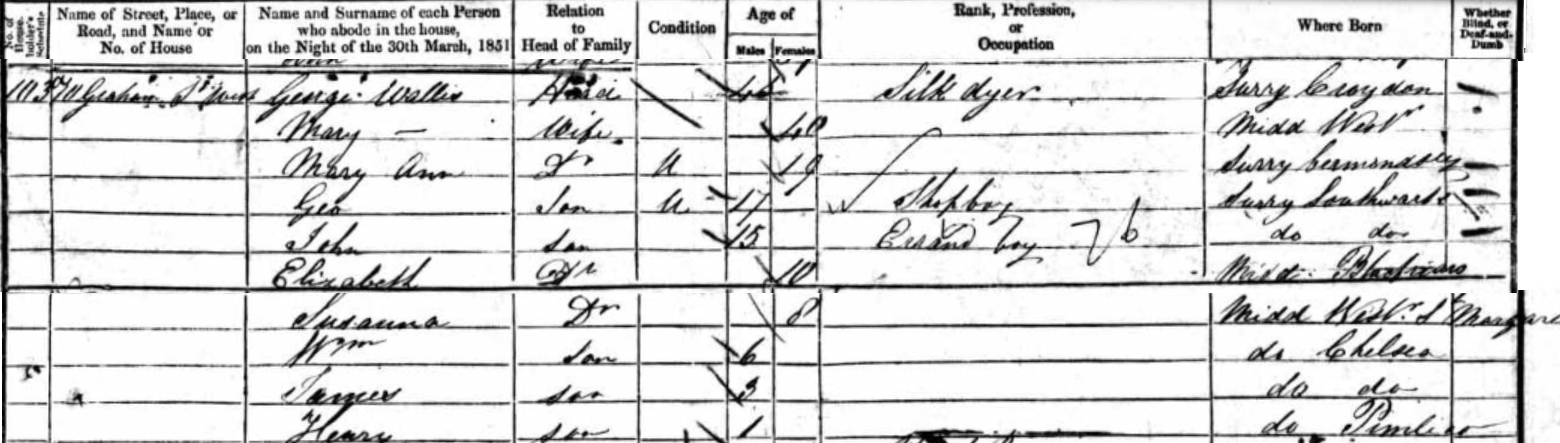 No. of House-holder's Schedule
Name of Street, Place, or Road, and Name or No. of House
Name and Surname of each Person who abode in the house, on the Night of the 30th March, 1851
Relation to Head of Family
Condition
Age of
Males Females
Rank, Profession, or Occupation
Where Born
Whether Blind, or Deaf-and-Dumb
103 70 Graham St George Wallis Head Silk dyer Surry Croydon
Mary — Wife 40 Midd West
Mary Ann Dr U 19 Surry Bermondsey
Geo Son U 17 Shopboy Surry Southwark
John son 15 Errand boy do do
Elizabeth Dr 10 Midd Blackfriars
Susanna Dr 8 Midd Westr. St Margare
Wm son 6 do Chelsea
James son 3 do do
Henry son 1 do Pimlico